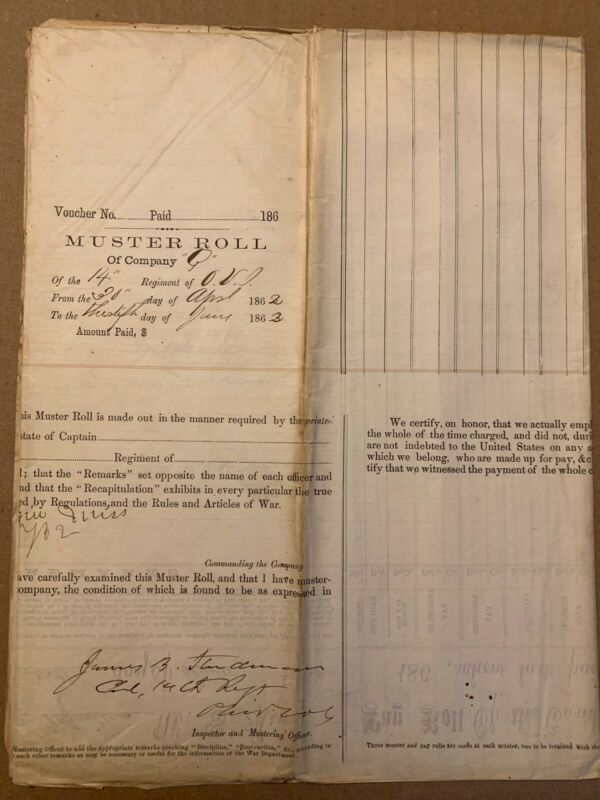 Voucher No. Paid 186
MUSTER ROLL
Of Company "G"
Of the 14" Regiment of O. V. I.
From the 30" day of April 1862
To the Thirtieth day of June 1862
Amount Paid, $
his Muster Roll is made out in the manner required by the printed
state of Captain
Regiment of
l; that the "Remarks" set opposite the name of each officer and
nd that the "Recapitulation" exhibits in every particular the true
ed by Regulations and the Rules and Articles of War.
Miss
Commanding the Company
ave carefully examined this Muster Roll, and that I have muster-
ompany, the condition of which is found to be as expressed in
James B. Steedman
Col, 14th Regt
Inspector and Mustering Officer.
Mustering Officer to add the appropriate remarks touching "Discipline," "Instruction," &c., according to
such other remarks as may be necessary or useful for the information of the War Department.
We certify, on honor, that we actually empl
the whole of the time charged, and did not, duri
are not indebted to the United States on any a
which we belong, who are made up for pay, &c.
tify that we witnessed the payment of the whole c
These muster and pay rolls are made at each muster, one to be retained with the